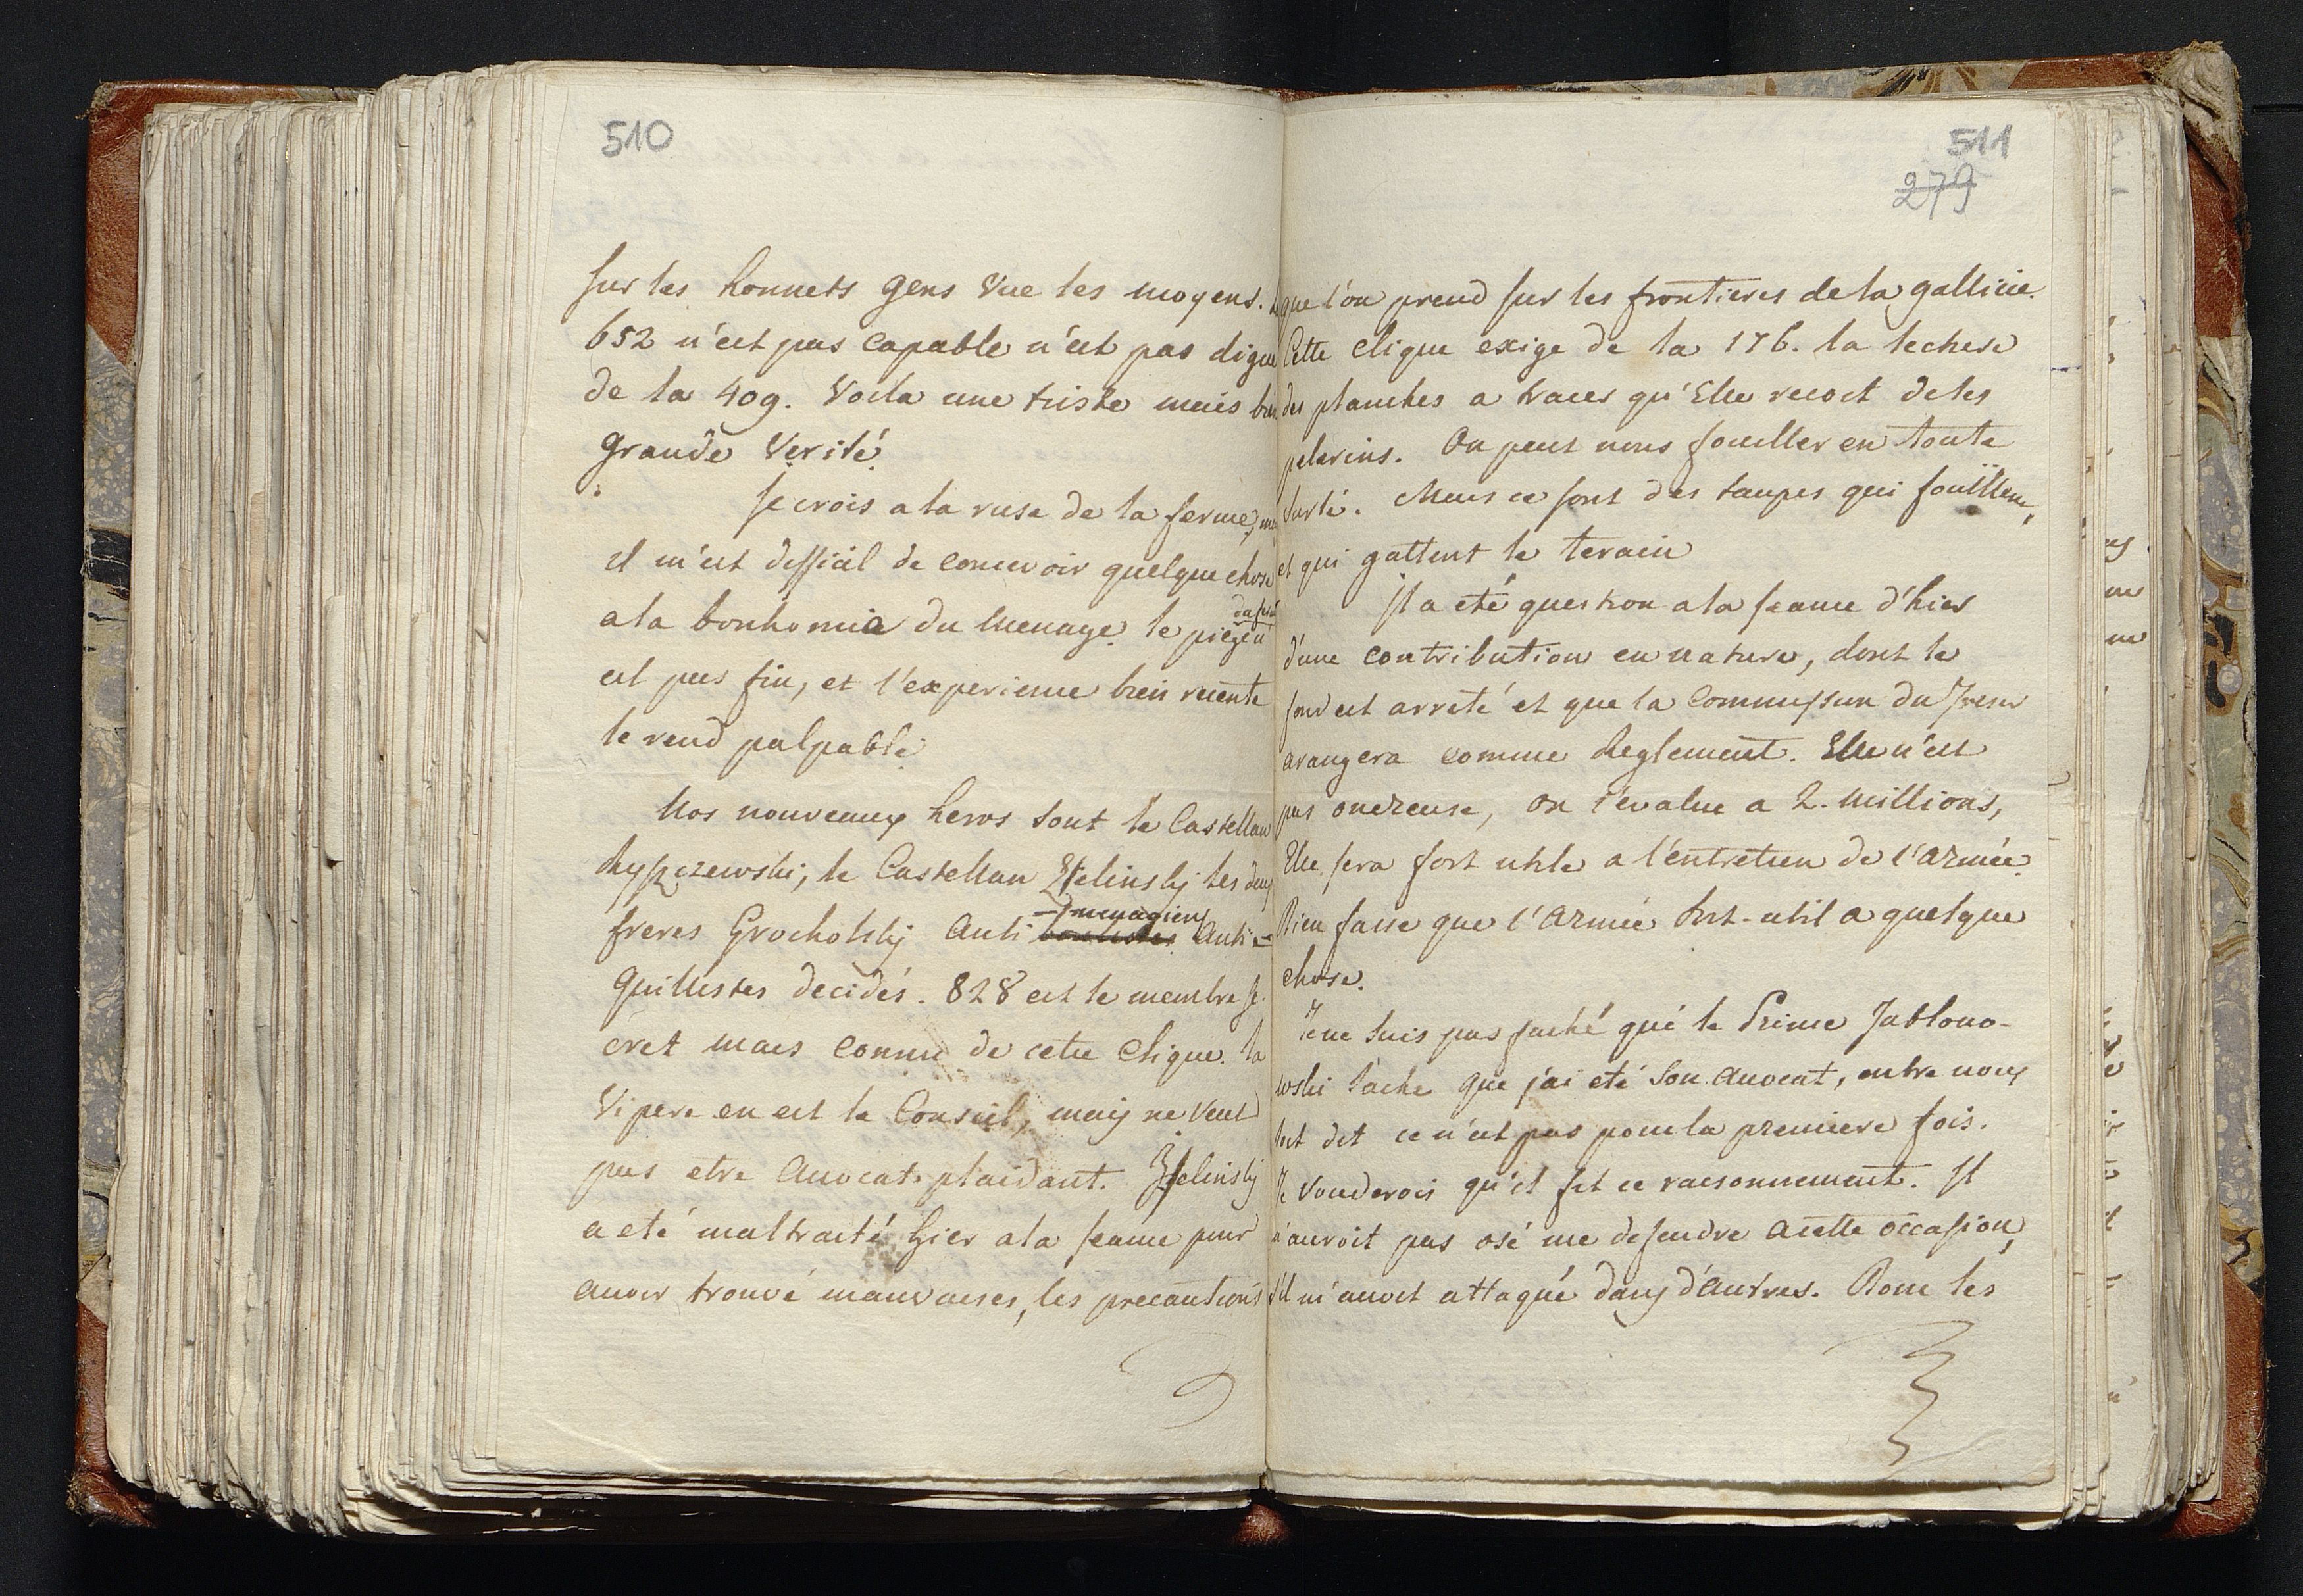 510
sur les honnets gens vue les moyens.
652 n'est pas capable n'est pas digne
de la 409. Voila une triste mais bien
grande Verité.
Je crois a la ruse de la ferme,
il m'est difficil de concevoir quelque chose
a la bonhomie du menage. le piege
est pas fin, et l'experience bien recente
le rend palpable
Nos nouveaux heros sont le Castellan
Ryszczewski, le Castellan Zielinsky les deux
freres Grocholsky Anti menagiens Anti-
guillistes decidés. 828 est le membre se-
cret mais connu de cette clique. la
Vipere en est le Conseil, mais ne veut
pas etre Avocat plaidant. Zielinsky
a eté maltraité hier a la seance pour
avoir trouvé mauvaises, les precautions
511
279
que l'on prend sur les frontieres de la gallicie.
Cette clique exige de la 176. la lechese
des planches a tracer qu'Elle recoit de les
pelerins. On peut nous fouiller en toute
surté. Mais ce sont des taupes qui fouïllent,
et qui gattent le terain
Il a eté question a la seance d'hier
d'une contribution en nature, dont le
fond est arreté et que la Commission du Tresor
arangera comme Reglement. Elle n'est
pas onereuse, on l'evalue a 2. millions,
Elle sera fort utile a l'entretien de l'armée.
Dieu fasse que l'armée soit utile a quelque
chose.
Je ne suis pas faché que le Prince Jablono-
wski sache que j'ai eté son avocat, entre nous
soit dit ce n'est pas pour la premiere fois.
Je vouderois qu'il fit ce raisonnement. Il
n'auroit pas osé me defendre a cette occasion,
s'il m'avoit attaqué dans d'autres. Pour les